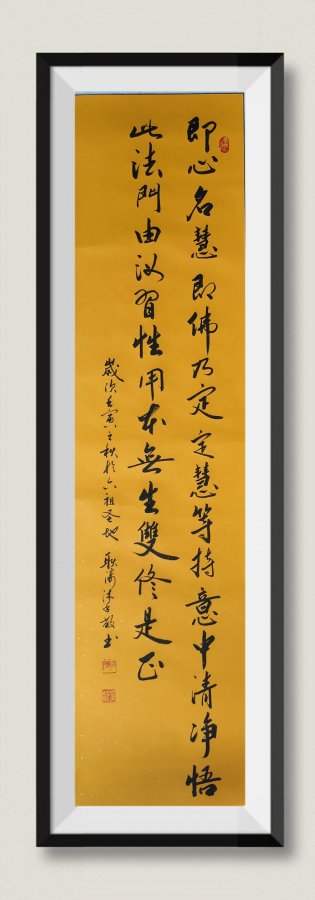 即心名慧即佛乃定定慧等持意中清净悟
此法門由汝習性用本無生雙修是正
歲次壬寅之秋於六祖圣地